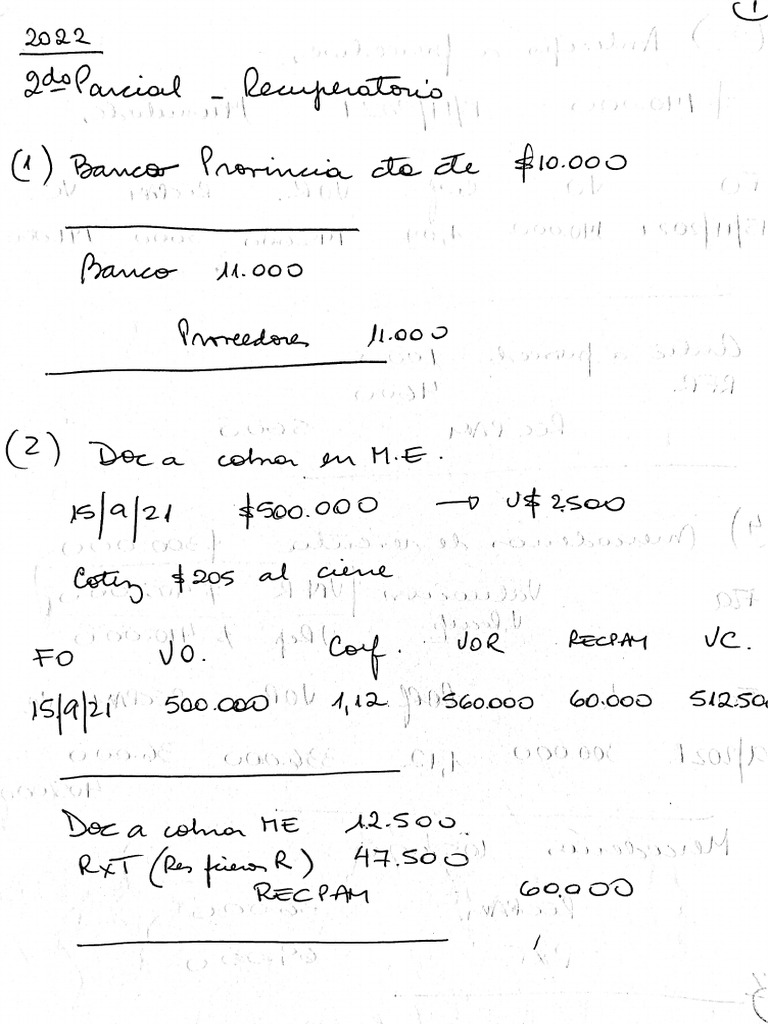 1
2022
2do Parcial - Recuperatorio
(1) Banco Provincia cta cte $10.000
Banco 11.000
Proveedores 11.000
(2) Doc a cobrar en M.E.
15/9/21 $500.000 → U$ 2.500
Cotiz $205 al cierre
FO VO. Coef. VOR RECPAM VC.
15/9/21 500.000 1,12 560.000 60.000 512.50
Doc a cobrar ME 12.500
RxT (Res fieros R) 47.500
RECPAM 60.000